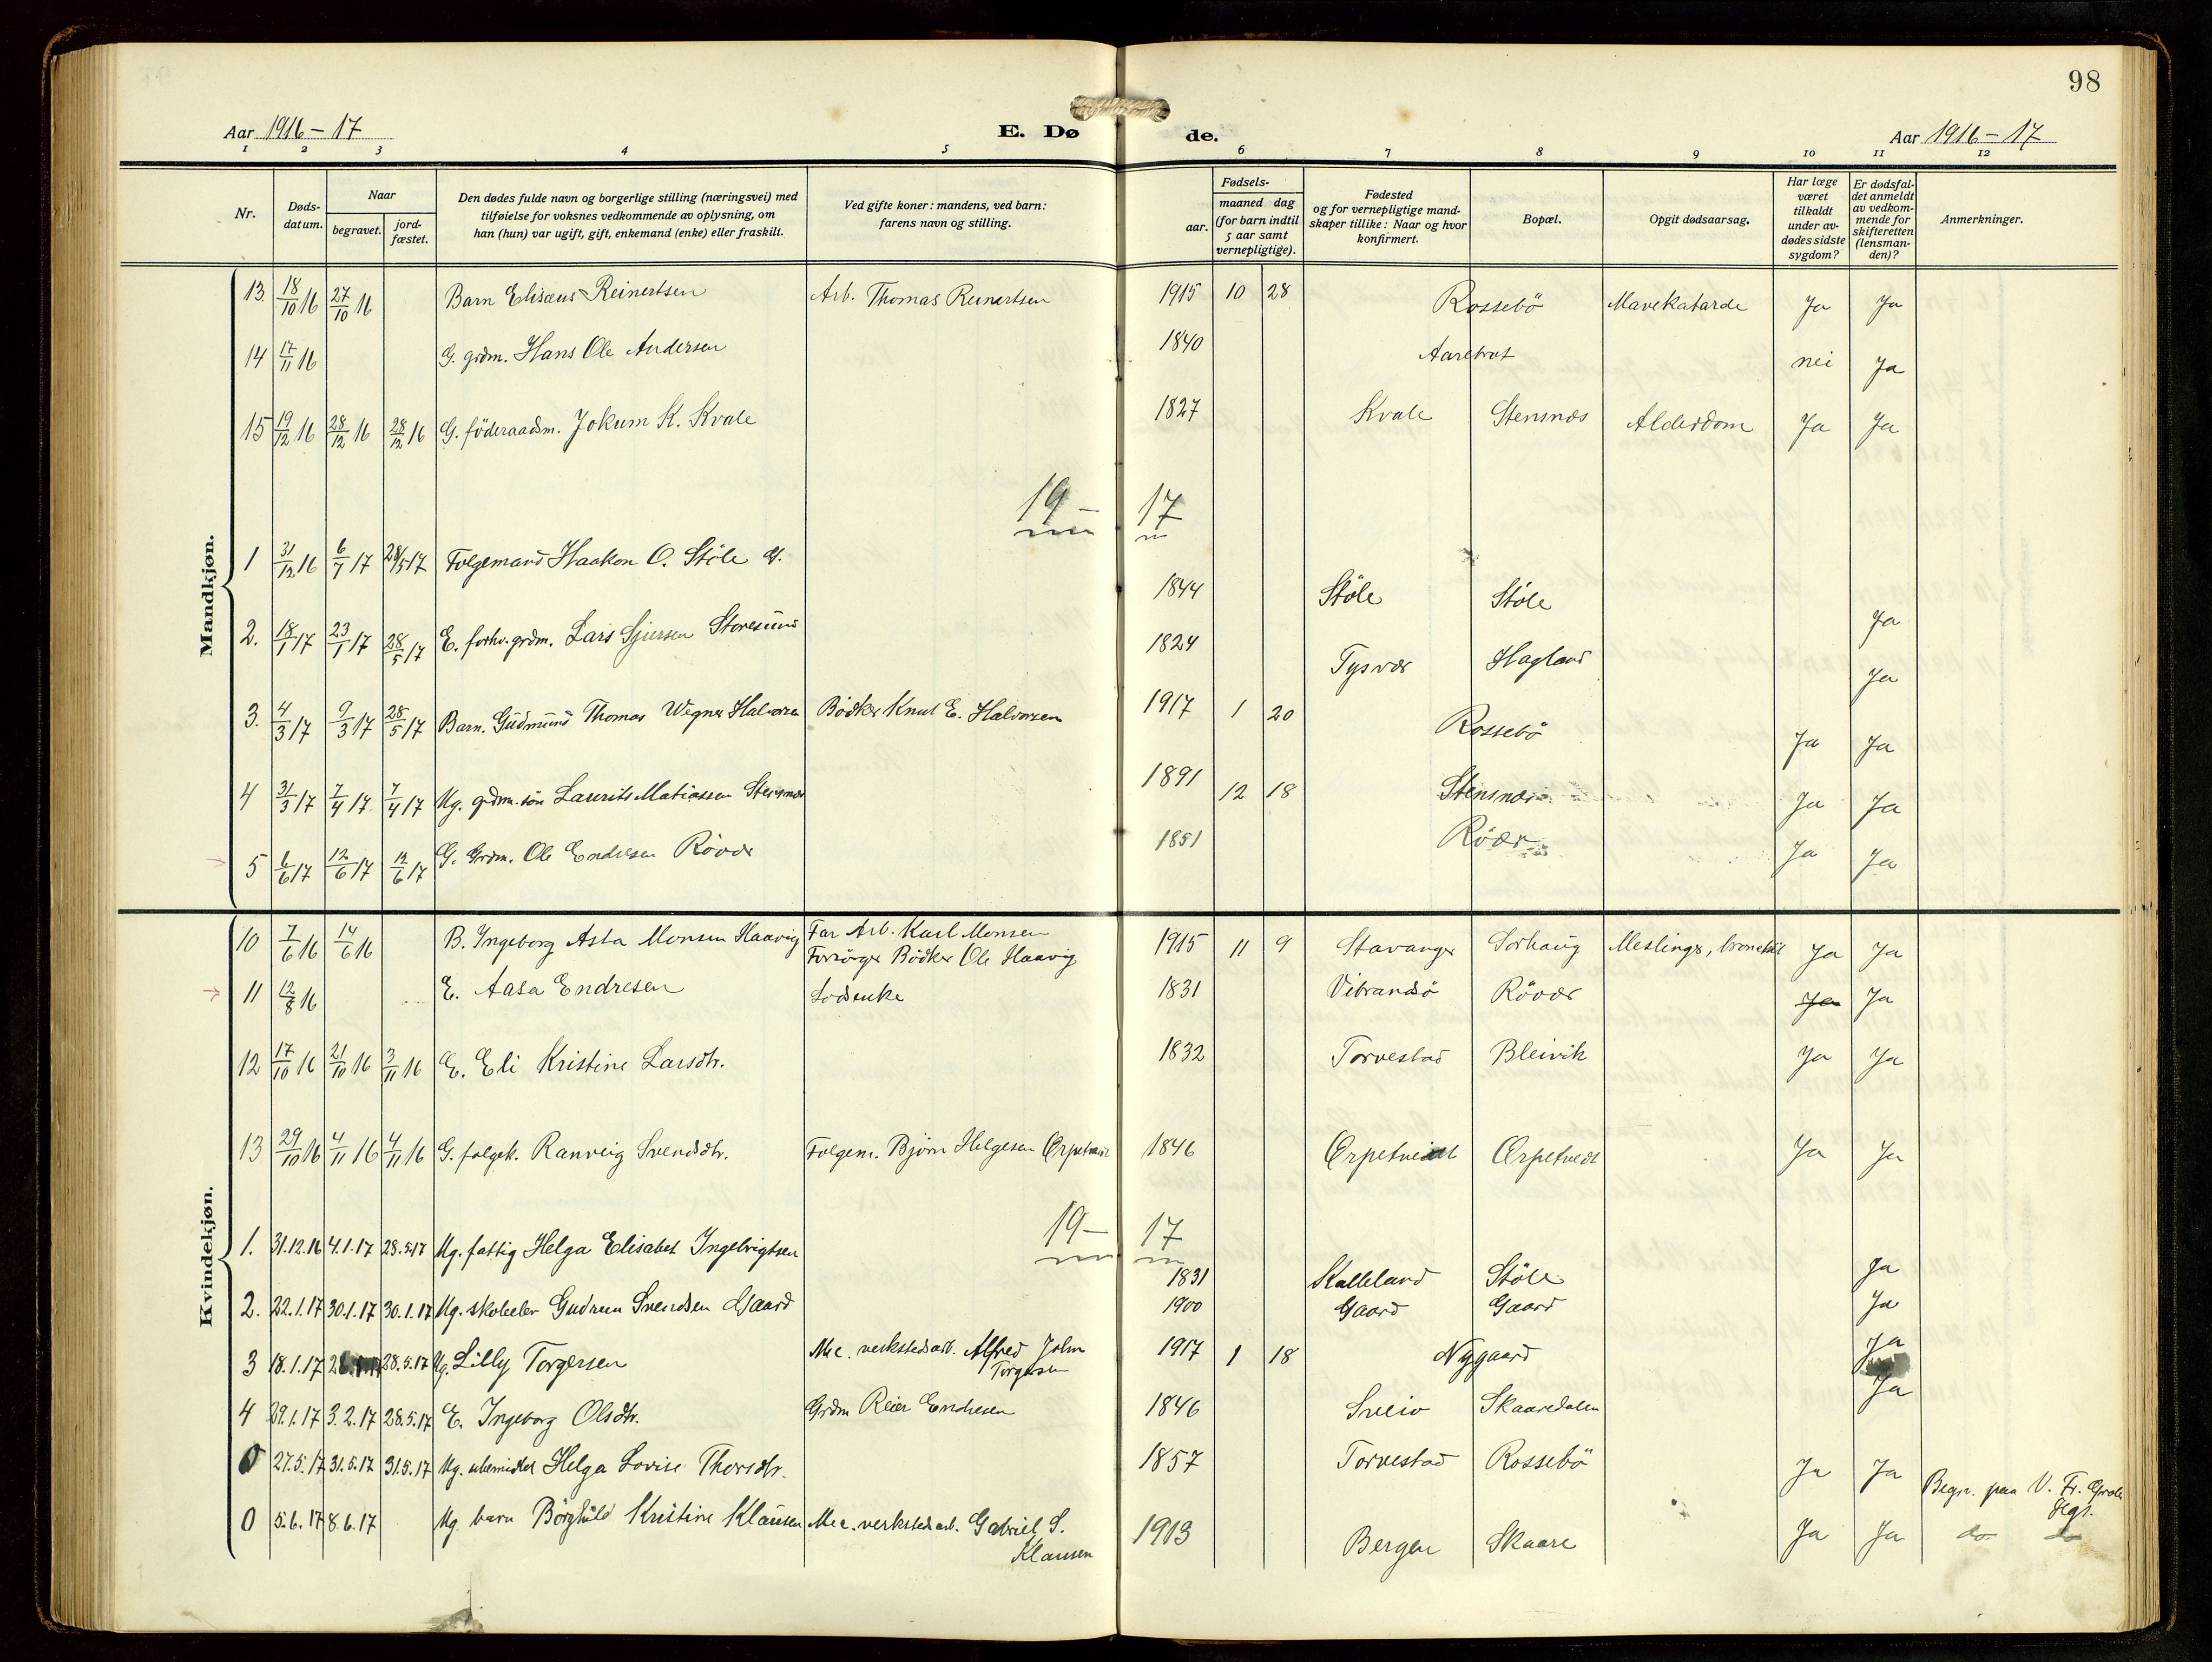 98
Aar 1916 – 17 E. Dø de. Aar 1916 – 17
1 2 3 4 5 6 7 8 9 10 11 12
Nr. Døds-datum. Naar begravet. jord-fæstet. Den dødes fulde navn og borgerlige stilling (næringsvei) med tilføielse for voksnes vedkommende av oplysning, om han (hun) var ugift, gift, enkemand (enke) eller fraskilt. Ved gifte koner: mandens, ved barn: farens navn og stilling. Fødsels- aar. maaned dag (for barn indtil 5 aar samt vernepligtige). Fødested og for vernepligtige mand-skaper tillike: Naar og hvor konfirmert. Bopæl. Opgit dødsaarsag. Har læge været tilkaldt under av-dødes sidste sygdom? Er dødsfal-det anmeldt av vedkom-mende for skifteretten (lensman-den)? Anmerkninger.
Mandkjøn.
13 18/10 16 27/10 16 Barn Elisæus Reinertsen Arb. Thomas Reinertsen 1915 10 28 Rossebö Mavekatarde Ja Ja
14 17/11 16 G. grdm. Hans Ole Andersen 1840 Aarebrot nei Ja
15 19/12 16 28/12 16 28/12 16 G. föderaadsm. Jokum K. Kvale 1827 Kvale Stensnæs Alderdom Ja Ja
19 – 17
1 31/12 16 6/1 17 28/5 17 Folgemand Haakon O. Stöle G. 1844 Stöle Stöle Ja
2. 18/1 17 23/1 17 28/5 17 E. forhv. grdm. Lars Sjursen Storesund 1824 Tysvær Hagland Ja
3. 4/3 17 9/3 17 28/5 17 Barn. Gudmund Thomas Wegner Halvorsen Bödker Knut E. Halvorsen 1917 1 20 Rossebö Ja Ja
4 31/3 17 7/4 17 7/4 17 Ug. grdm. sön Laurits Matiassen Stensnæs 1891 12 18 Stensnæs Ja Ja
5 6/6 17 12/6 17 12/6 17 G. Grdm. Ole Endresen Rövær 1851 Rövær Ja Ja
Kvindekjøn.
10 7/6 16 14/6 16 B. Ingeborg Asta Monsen Haavig Far Arb. Karl Monsen
Forsörger Bödker Ole Haavig 1915 11 9 Stavanger Sorhaug Meslinger, Ja Ja
11 12/8 16 E. Aasa Endresen Lodsenke 1831 Vibrandsö Rövær Ja Ja
12 17/10 16 21/10 16 3/11 16 E. Eli Kristine Larsdtr. 1832 Torvestad Bleivik Ja Ja
13 29/10 16 4/11 16 4/11 16 G. folgek. Ranveig Svendsdtr. Folgem. Bjørn Helgesen Ørpetvedt 1846 Ørpetvedt Ørpetvedt Ja Ja
19 – 17
1. 31.12.16 4.1.17 28.5.17 Ug. fattig Helga Elisabet Ingebrigtsen 1831 Kalleland Stöle Ja
2. 22.1.17 30.1.17 30.1.17 Ug. skoleelev Gudrun Svendsen Gaard 1900 Gaard Gaard Ja
3 18.1.17 28.5.17 Ug. Lilly Torgersen Mec. verkstedsarb. Alfred John
Torgersen 1917 1 18 Nygaard Ja
4 29.1.17 3.2.17 28.5.17 E. Ingeborg Olsdtr. Grdm Reier Endresen 1846 Sveio Skaaredalen Ja
0 27.5.17 31.5.17 31.5.17 Ug. ubemidlet Helga Lovise Thorsdtr. 1857 Torvestad Rossebö Ja Ja Begr. paa V. Fr. Grav
Hgs.
0 5.6.17 8.6.17 Ug. barn Börghild Kristine Klausen Mec. verkstedsarb. Gabriel S.
Klausen 1913 Bergen Skaare Ja Ja do